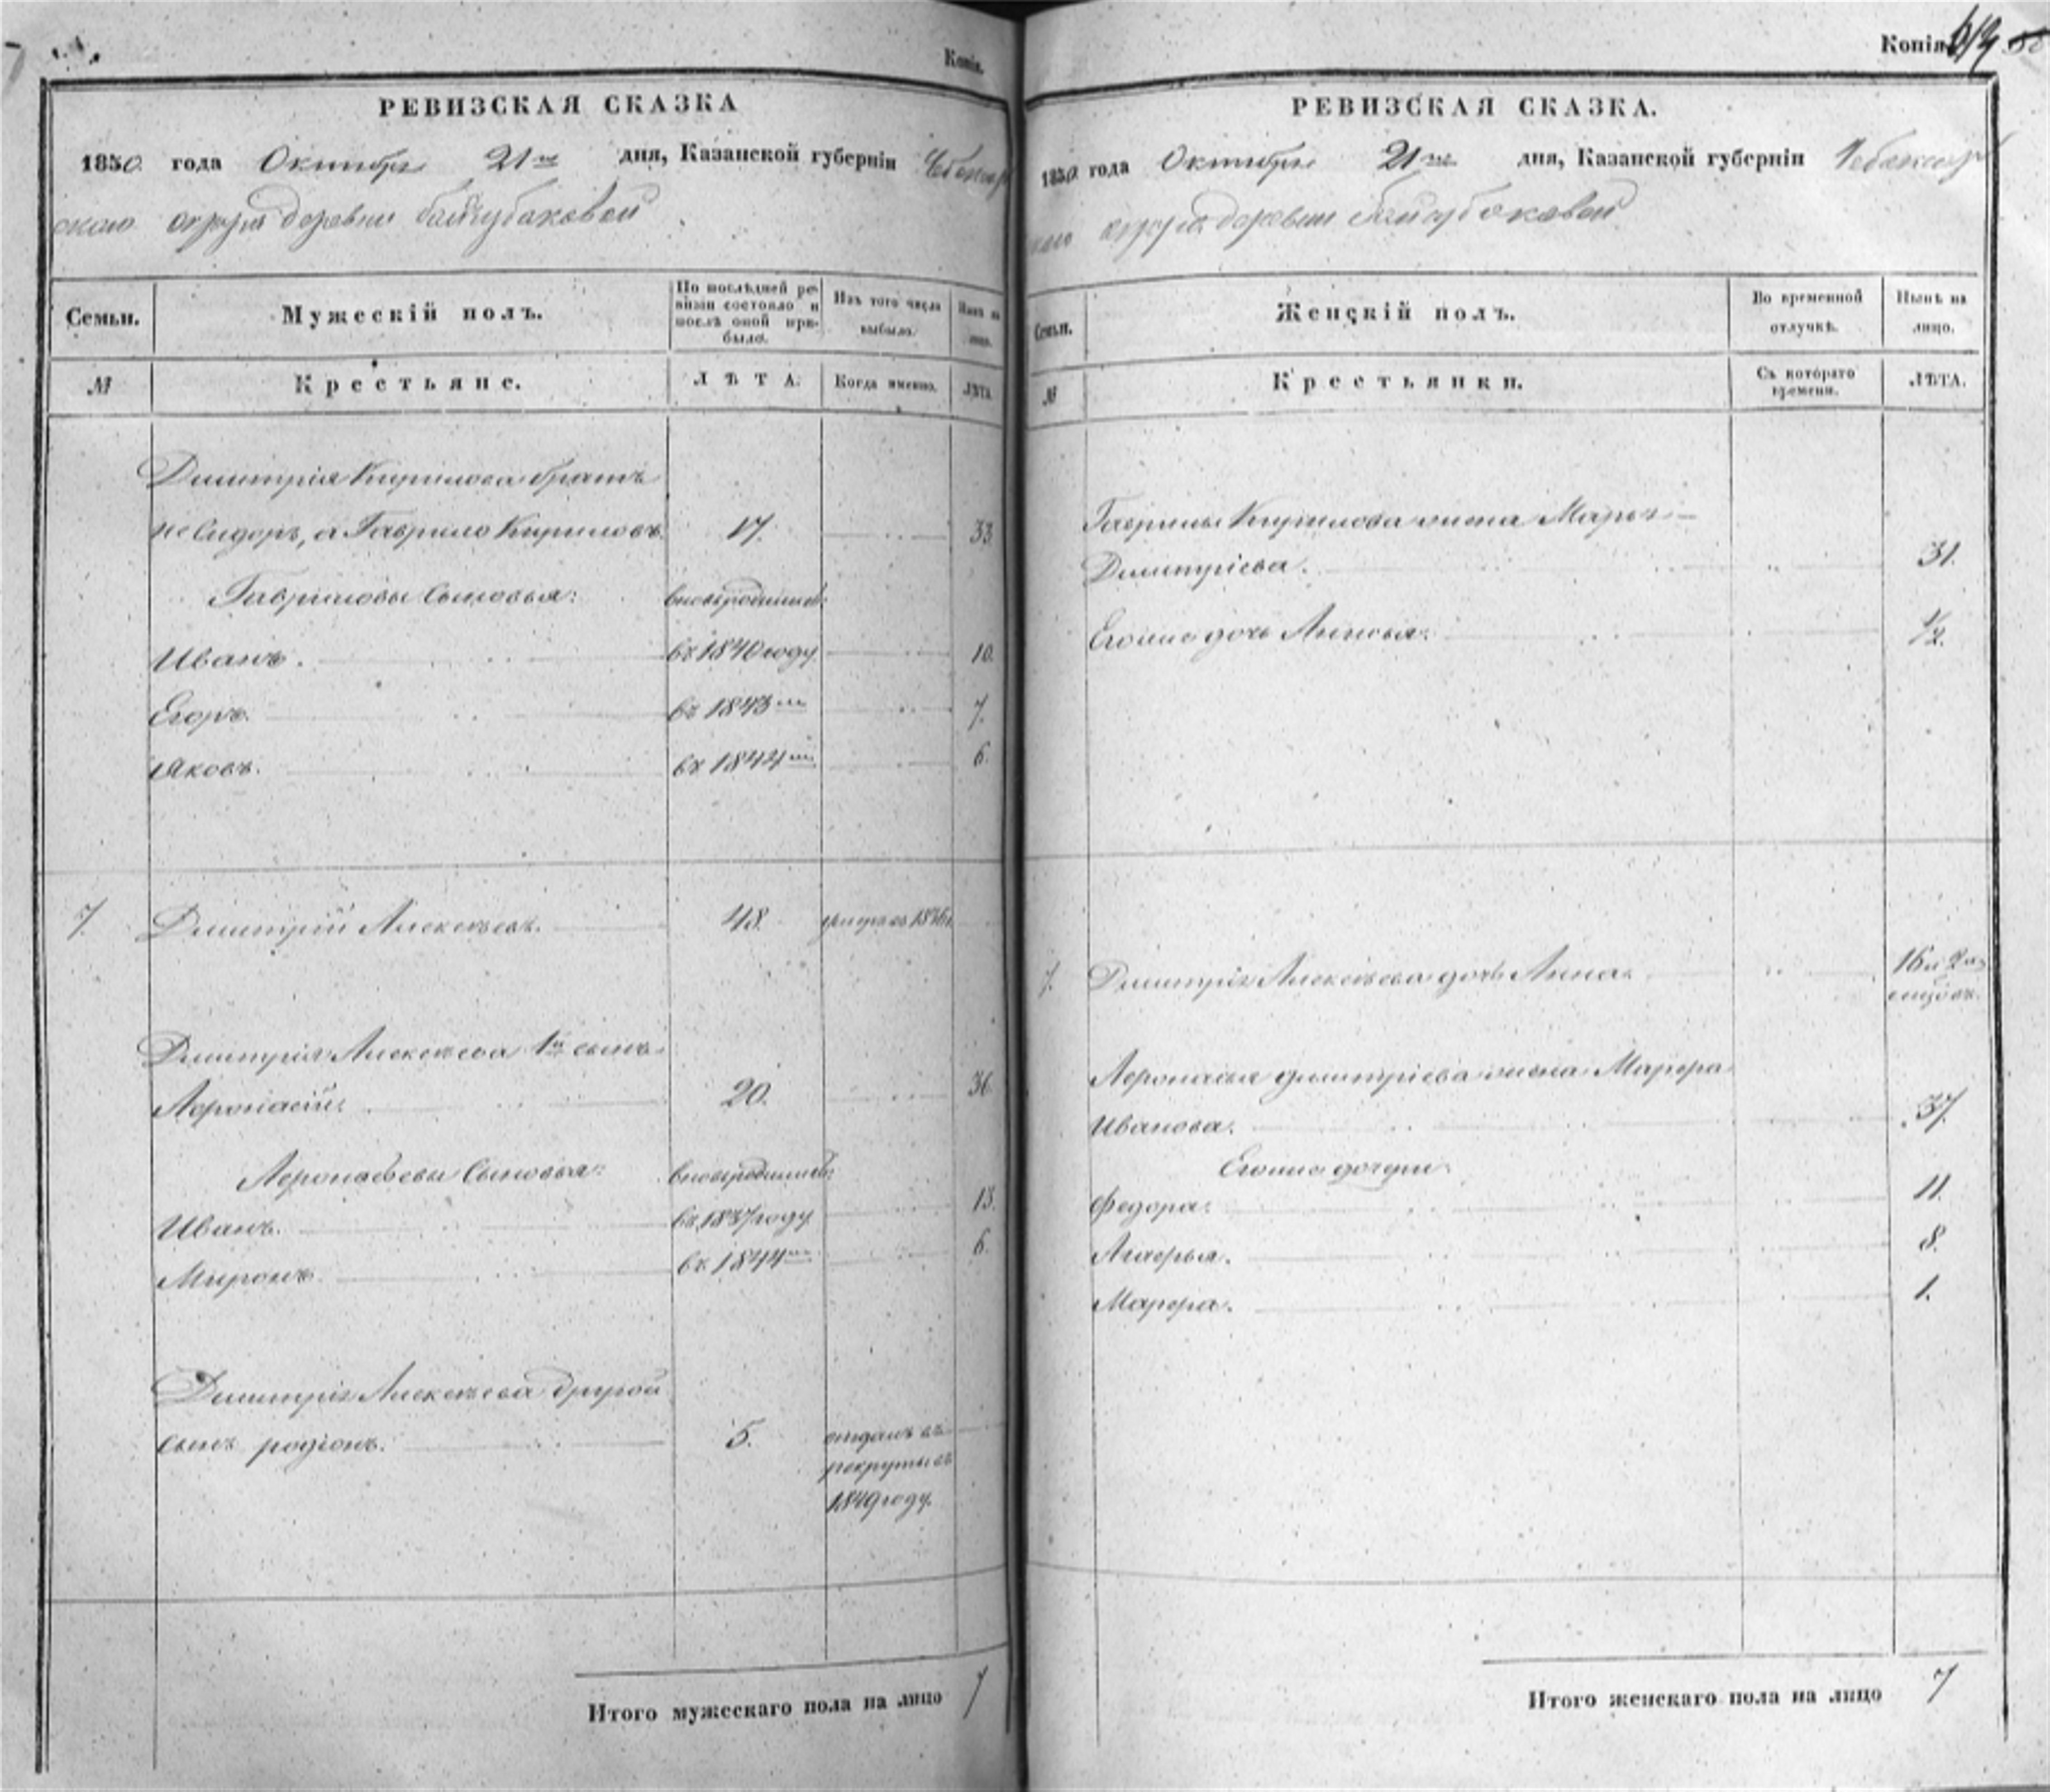 Копія.
РЕВИЗСКАЯ СКАЗКА
1850 года Октября 21го дня, Казанской губерніи Чебоксар
скаго округа деревни Байгубаковой
Семьи.
Мужескій полъ.
По послѣдней ре-
визіи состояло и
послѣ оной при-
было.
Изъ того числа
выбыло.
Нынѣ на
лицо.
№
Крестьяне.
ЛѢТА.
Когда именно.
ЛѢТА.
Димитрія Кирилова братъ
не Сидоръ, а Гаврило Кириловъ 17. 33.
Гавриловы Сыновья: вновьрожденныя:
Иванъ. въ 1840 году 10.
Егоръ. въ 1843мъ 7.
Яковъ. въ 1844мъ 6.
7. Димитрій Алексѣевъ. 48. умеръ въ 1846
Димитрія Алексѣева 1й сынъ
Афонасій. 20. 36
Афонасьевы Сыновья: вновьрожденныя:
Иванъ. въ 1837 году 13.
Миронъ. въ 1844мъ 6.
Димитрія Алексѣева другой
сынъ родіонъ. 5. отданъ въ
рекруты въ
1849 году.
Итого мужескаго пола на лицо 7
Копія
РЕВИЗСКАЯ СКАЗКА.
1850 года Октября 21го дня, Казанской губерніи Чебоксар
скаго округа деревни Байгубаковой
Семьи.
Женскій полъ.
Во временной
отлучкѣ.
Нынѣ на
лицо.
№
Крестьянки.
Съ котораго
времени.
ЛѢТА.
Гаврилы Кирилова жена Марья
Димитріева. 31.
Егоже дочь Анисья. 1/2.
7. Димитрія Алексѣева дочь Анна. 16 и 2 мѣ
сяцовъ.
Афонасья димитріева жена Марфа
Иванова. 37.
Егоже дочери:
Федора. 11.
Агафья. 8.
Марфа. 1.
Итого женскаго пола на лицо 7